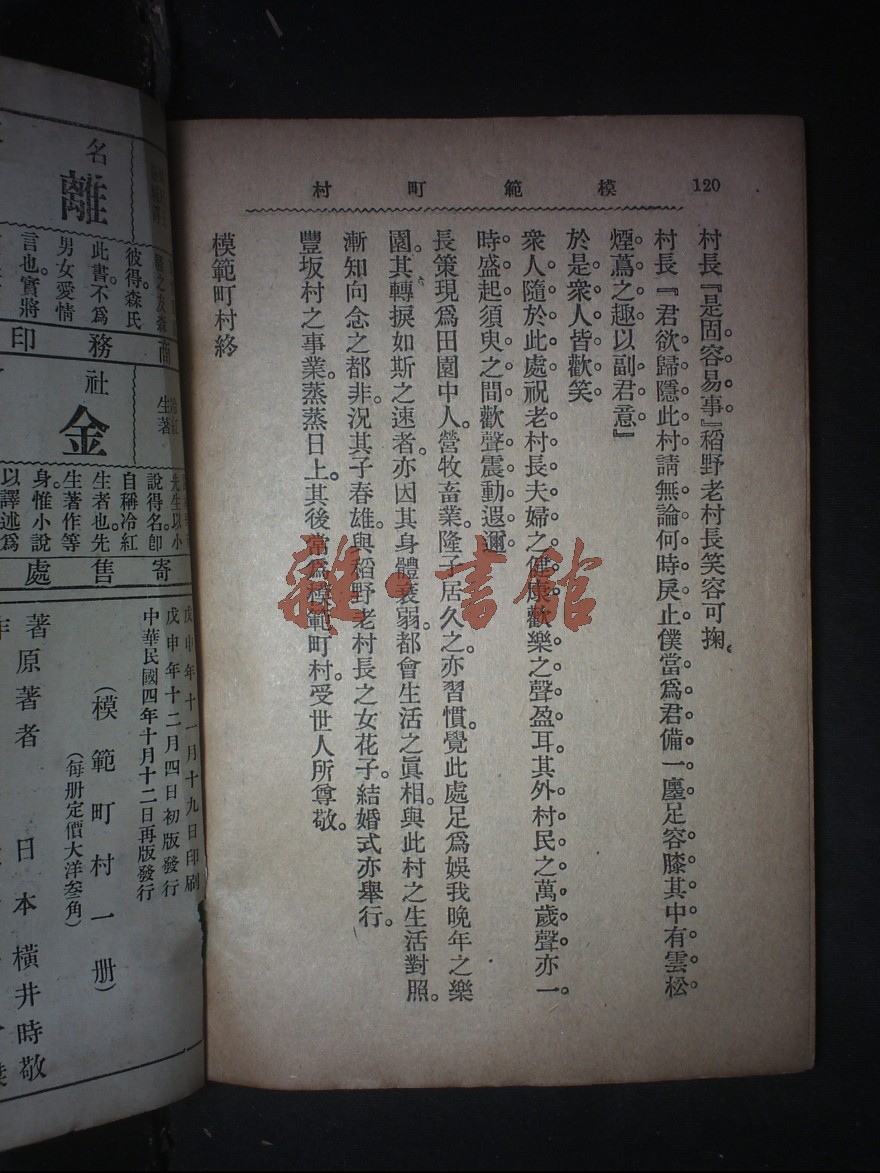 120
模範町村
村長『是固容易事』稻野老村長笑容可掬。
村長『君欲歸隱此村請無論何時戾止僕當爲君備一廛足容膝其中有雲松
煙蔦之趣以副君意』
於是衆人皆歡笑
衆人隨於此處祝老村長夫婦之健康歡樂之聲盈耳其外村民之萬歲聲亦一
時盛起須臾之間歡聲震動遐邇
長策現爲田園中人。營牧畜業。隆子居久之。亦習慣。覺此處足爲娛我晚年之樂
園。其轉捩如斯之速者。亦因其身體衰弱。都會生活之眞相。與此村之生活對照。
漸知向念之都非。況其子春雄。與稻野老村長之女花子。結婚式亦舉行。
豐坂村之事業。蒸蒸日上。其後當爲模範町村。受世人所尊敬。
模範町村終
雜·書館
名
離
彼得森氏
此書不爲
男女愛情
言也。實將
商
務
印
社
金
冷紅
生著
先生以小
說得名。卽
自稱冷紅
生者也。先
生著作等
身。惟小說
以譯述爲
寄售處
戊申年十一月十九日印刷
戊申年十二月四日初版發行
中華民國四年十月十二日再版發行
（模範町村一册）
（每册定價大洋叁角）
原著者 日本橫井時敬
著